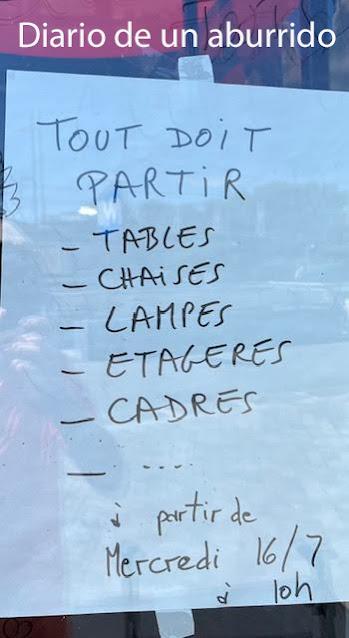 Diario de un aburrido
TOUT DOIT
PARTIR
- TABLES
- CHAISES
- LAMPES
- ETAGERES
- CADRES
- ....
à partir de
Mercredi 16/7
à 10h